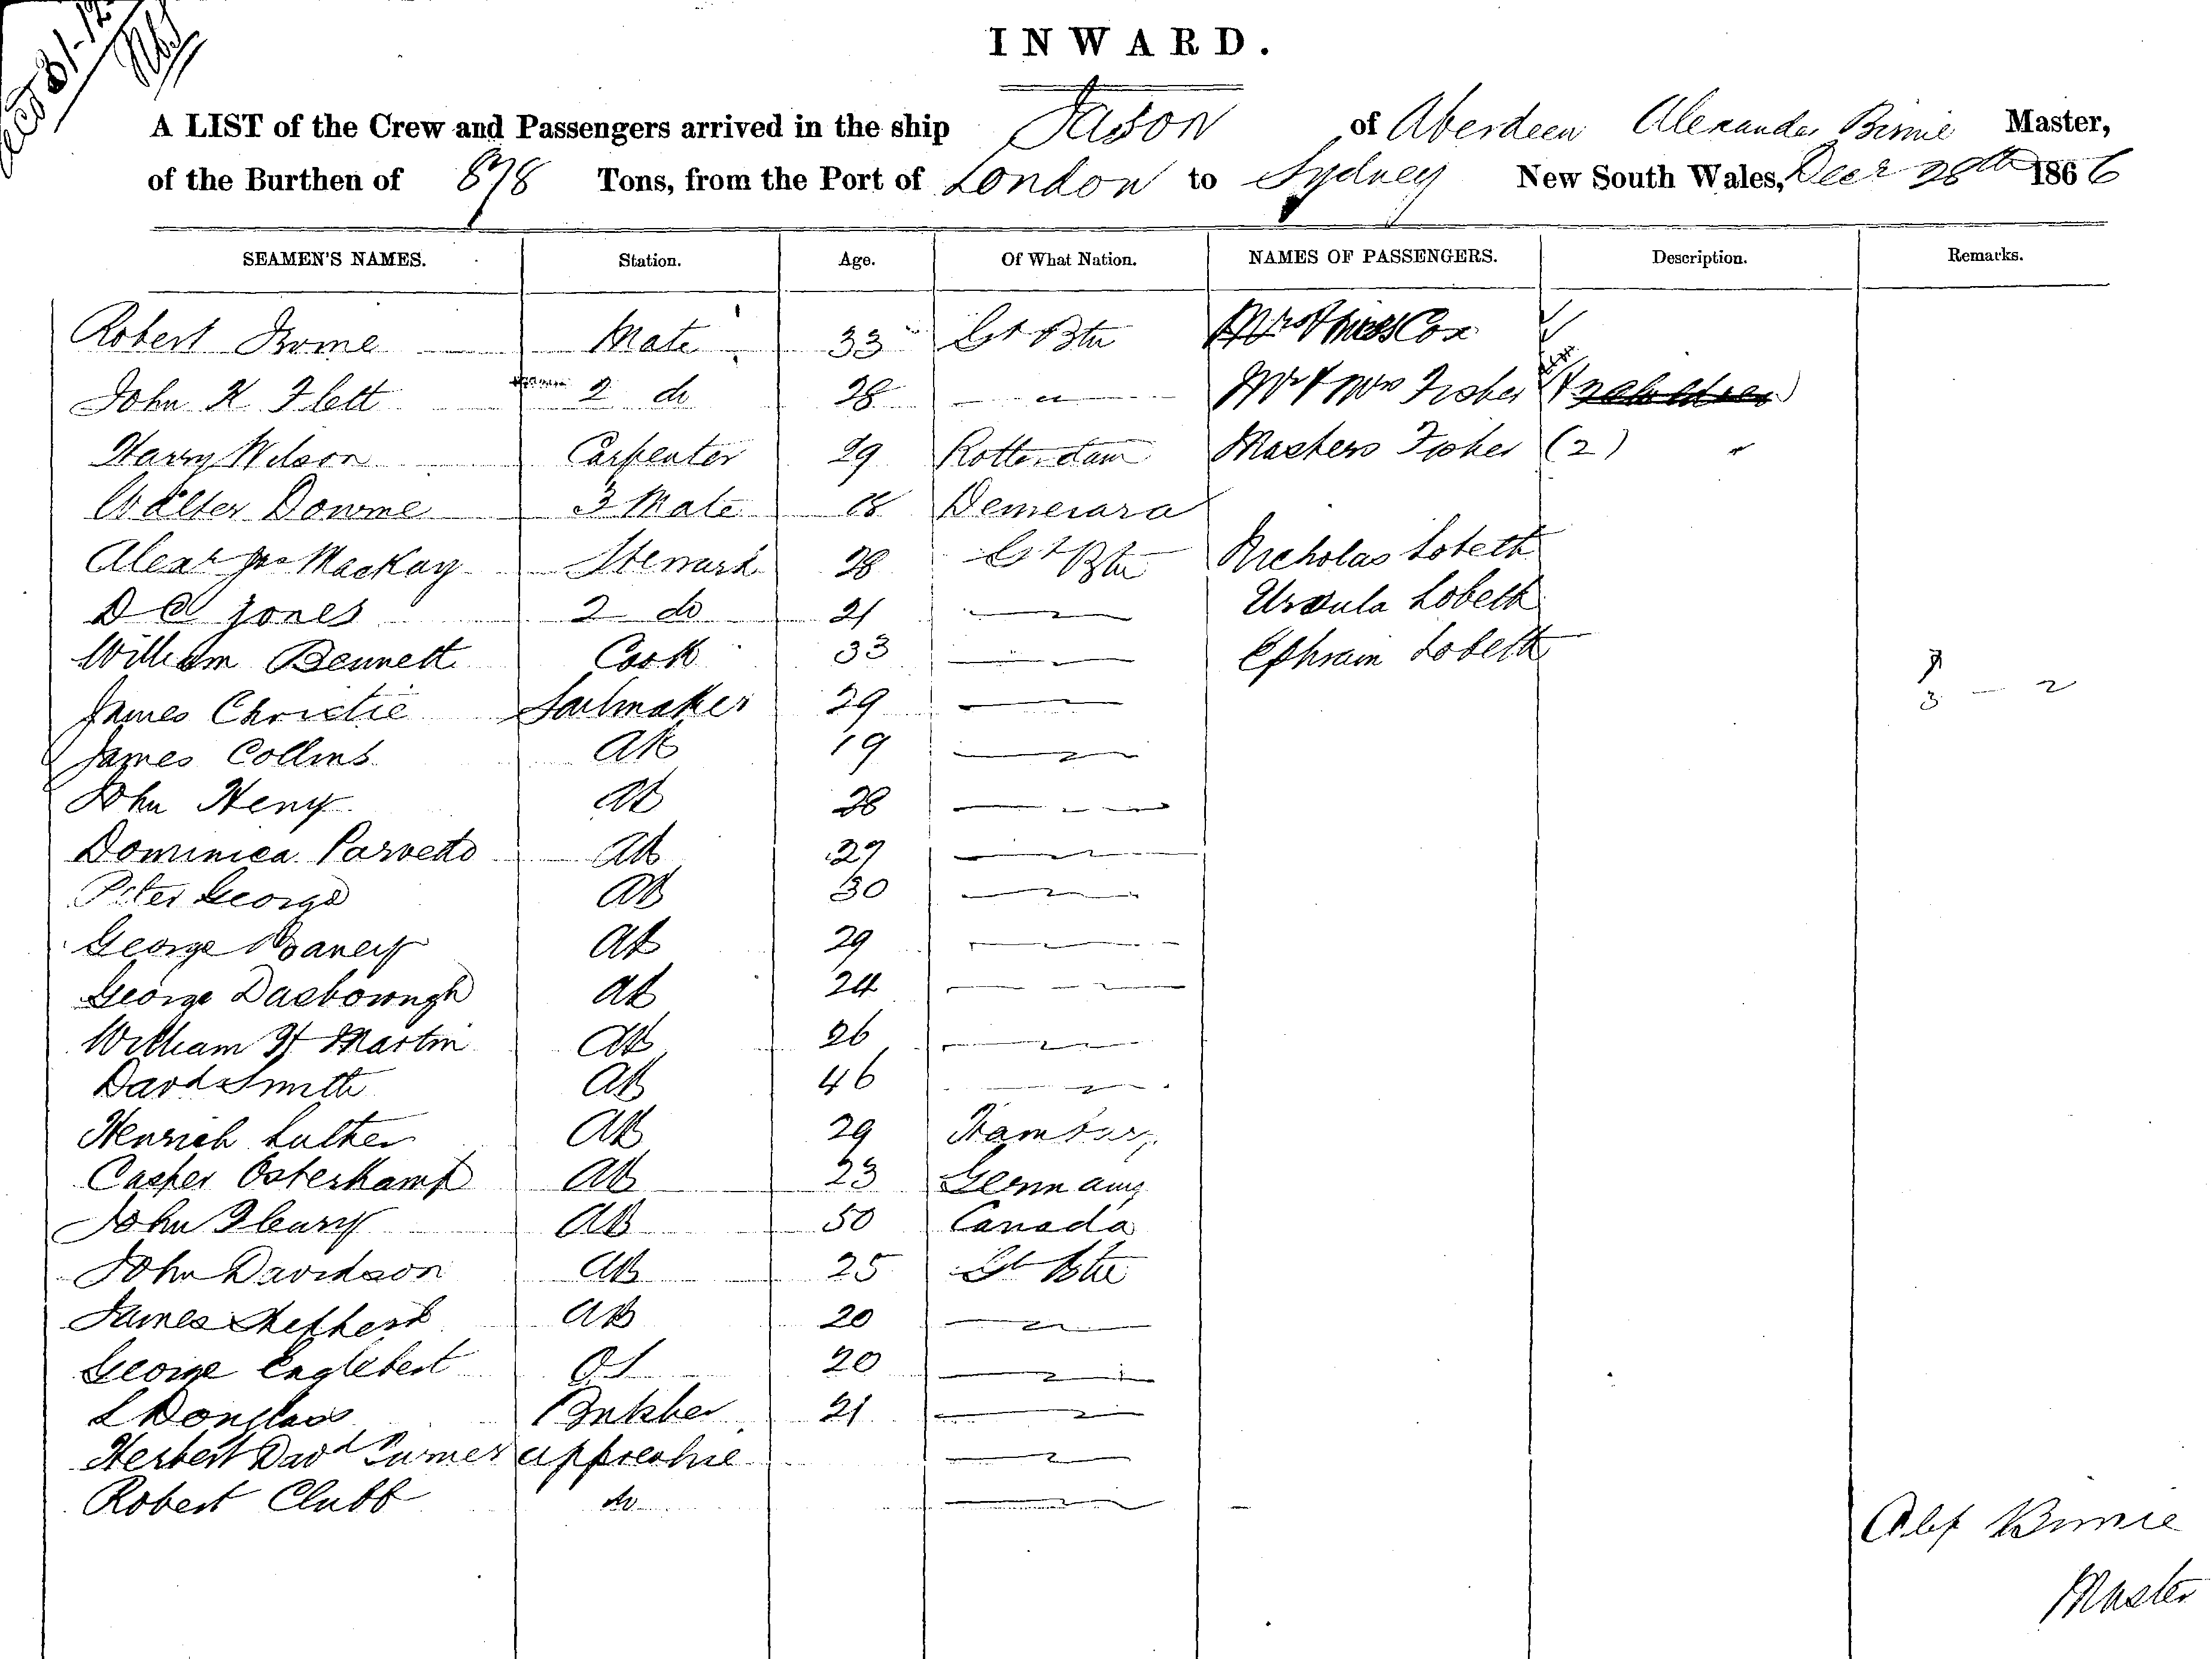 INWARD.
A LIST of the Crew and Passengers arrived in the ship Jason of Aberdeen Alexander Birnie Master,
of the Burthen of 878 Tons, from the Port of London to Sydney New South Wales, Decr 28th 1866
SEAMEN'S NAMES. Station. Age. Of What Nation. NAMES OF PASSENGERS. Description. Remarks.
Robert Mate 33 Gt Btn Cox
John K Flett 2 do 28 Mr & Mrs Fisher
Harry Wilson Carpenter 29 Rotterdam Masters Fisher (2) "
Walter Downie 3 Mate 18 Demerara
Alexr MacKay Steward 28 Gt Btn Nicholas Lobeth
D C Jones 2 do 21 Ursula Lobeth
William Bennett Cook 33 Ephraim Lobeth
James Christie Sailmaker 29 3 - 2
James Collins AB 19
John Heny AB 28
Dominica Parvetto AB 27
Peter George AB 30
George AB 29
George Dasborough AB 24
William H Martin AB 26
Davd Smith AB 46
Henrich Luther AB 29 Hamburg
Casper Osterkamp AB 23 Germany
John Fleury AB 50 Canada
John Davidson AB 25 Gt Btn
James Shepherd AB 20
George Englebert OS 20
L Douglass Butcher 21
Herbert Davd Turner apprentice
Robert Clubb do
Alex Birnie
Master